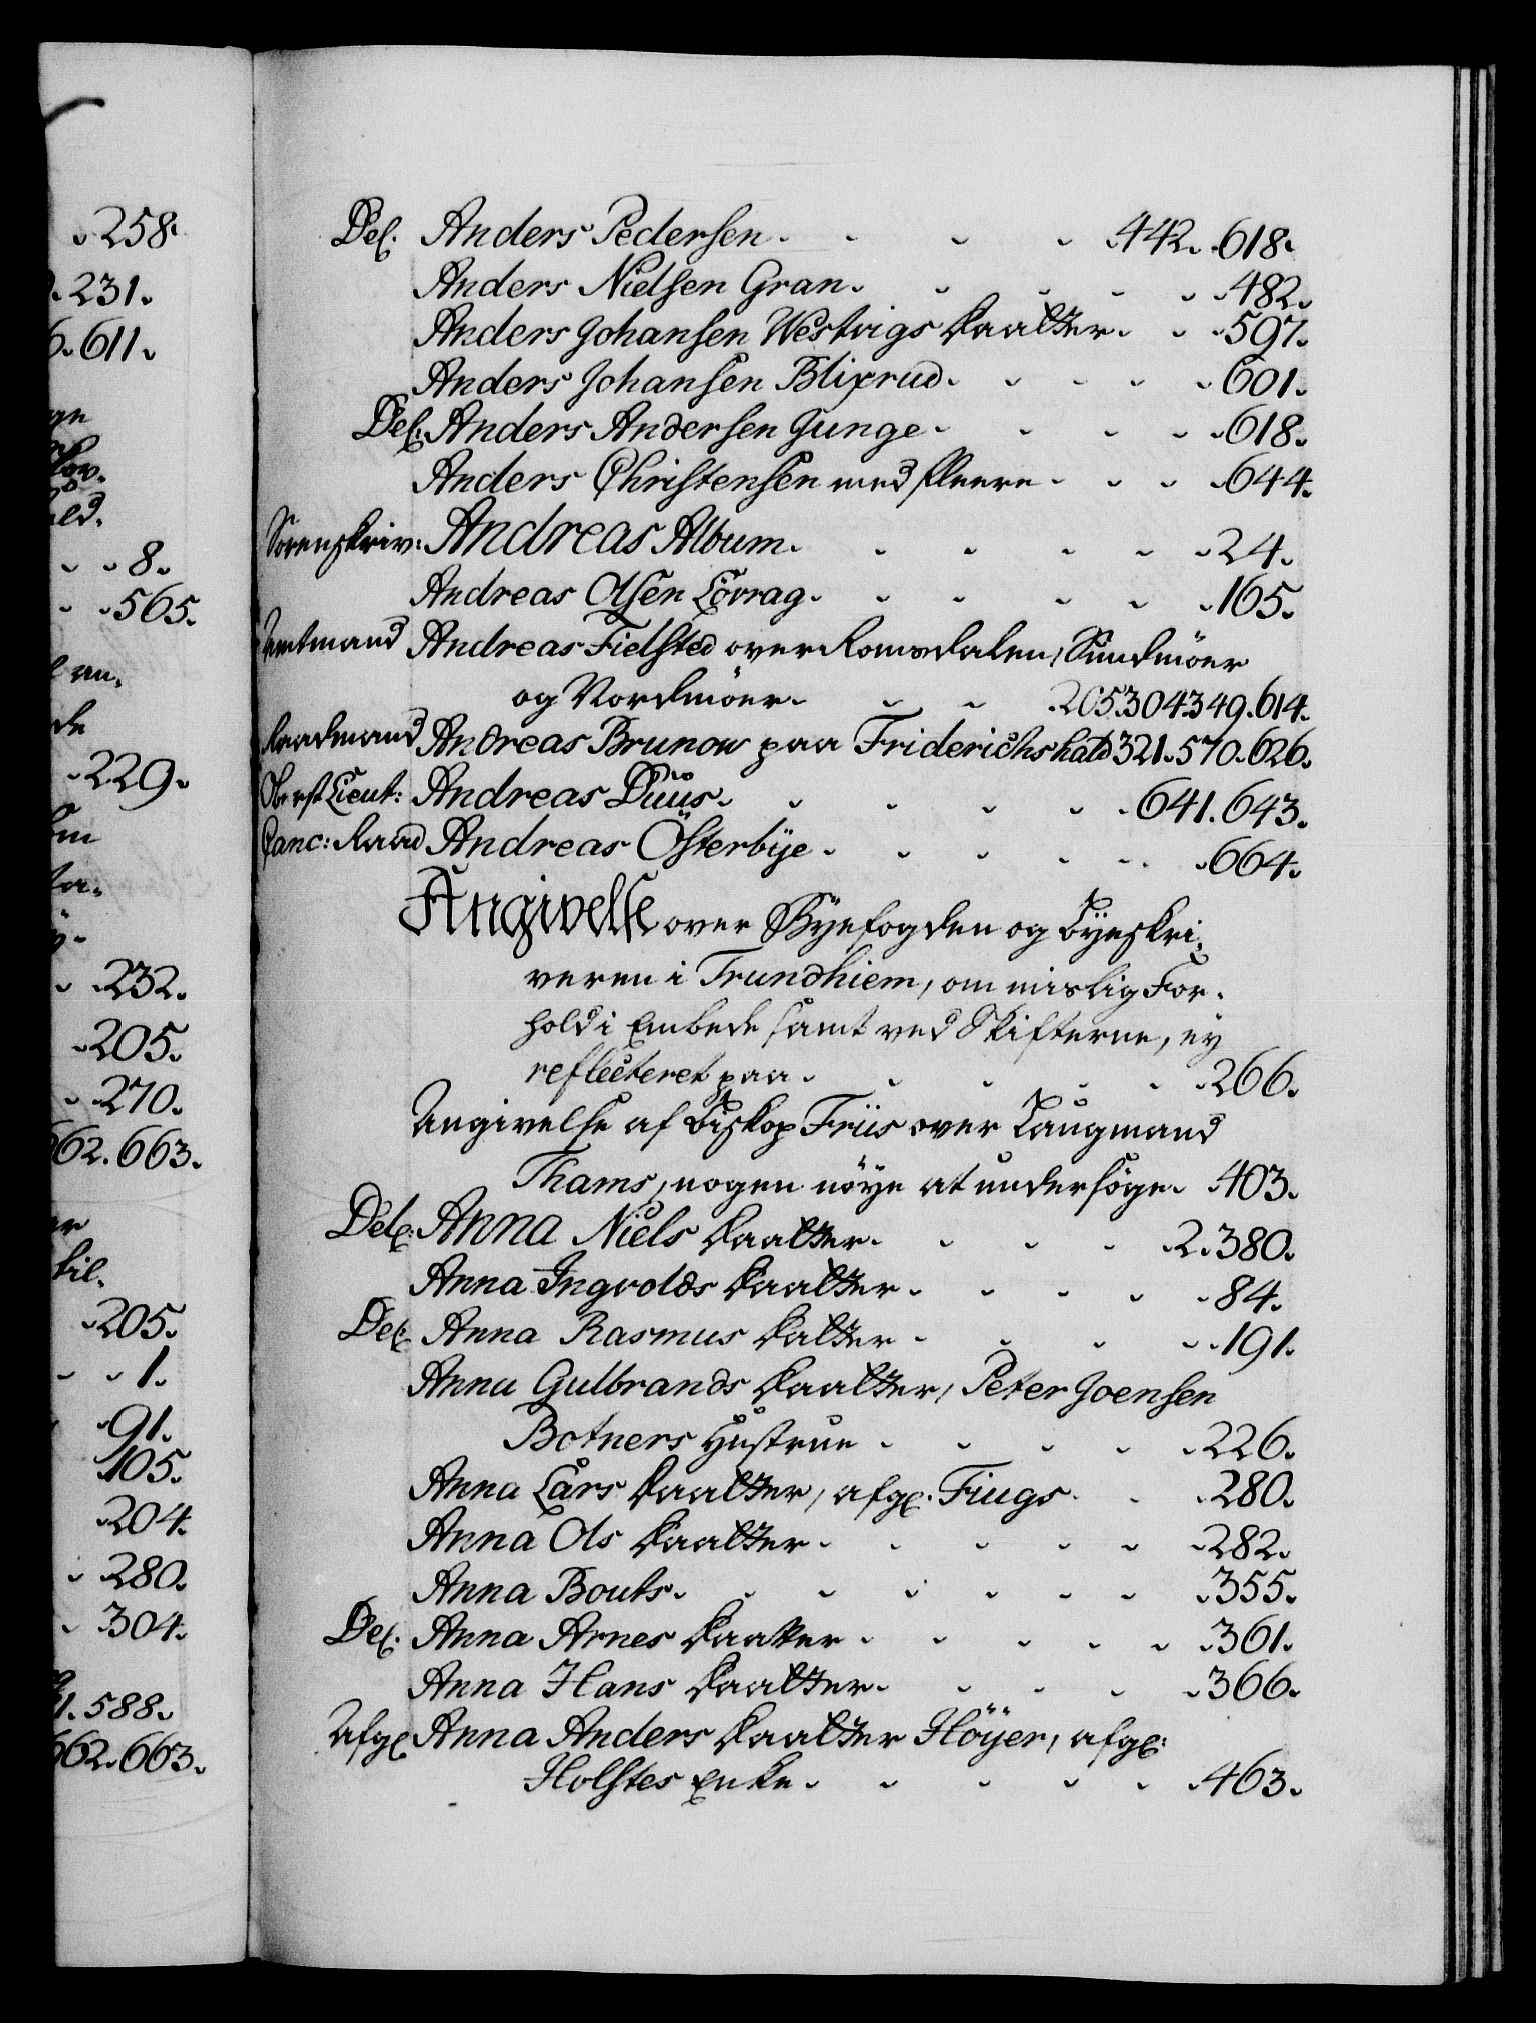 258.
231.
611.
8.
565.
229.
232.
205.
270.
662.663.
205.
1.
91.
105.
204.
280.
304.
588.
662.663.
Del. Anders Pedersen. 442. 618.
Anders Nielsen Gran. 482.
Anders Johansen Westvigs Daatter. 597.
Anders Johansen Blixrud. 601.
Del. Anders Andersen Junge. 618.
Anders Christensen med fleere. 644.
Sorenskriv: Andreas Album. 24.
Andreas Olsen Lövrag. 165.
Amtmand Andreas Fielsted over Romsdalen, Sundmöer
og Nordmöer. 205.304.349.614.
Raadmand Andreas Brunow paa Friderichshald 321.570.626.
Oberst Lieut: Andreas Duus. 641.643.
Canc: Raad Andreas Österbÿe. 664.
Angivelse over Byefogden og Byeskri-
veren i Trundhiem, om mislig For-
hold i Embede samt ved Skifterne, ey
reflecteret paa. 266.
Angivelse af Biskop Friis over Laugmand
Thams, nogen nöye at undersöge. 403.
Del. Anna Niels Daatter. 2.380.
Anna Ingvolds Daatter. 84.
Del. Anna Rasmus Datter. 191.
Anna Gulbrands Daatter, Peter Joensen
Botners Hustrue. 226.
Anna Lars Daatter, afg: Fiugs. 280.
Anna Ols Daatter. 282.
Anna Bouts. 355.
Del. Anna Arnes Daatter. 361.
Anna Hans Daatter. 366.
Afg: Anna Anders Daatter Höÿer, afg:
Holstes Enke. 463.